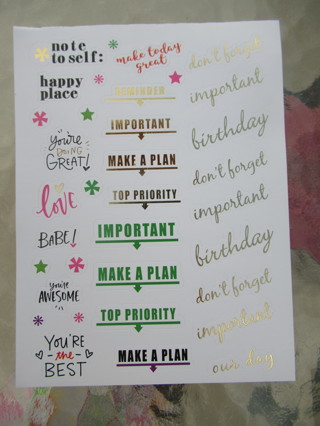 note
to self:
happy
place
You're
DOING
GREAT!
love
BABE!
you're
AWESOME
YOU'RE
the
BEST
make today
great
REMINDER
IMPORTANT
MAKE A PLAN
TOP PRIORITY
IMPORTANT
MAKE A PLAN
TOP PRIORITY
MAKE A PLAN
don't forget
important
birthday
don't forget
important
birthday
don't forget
important
our day